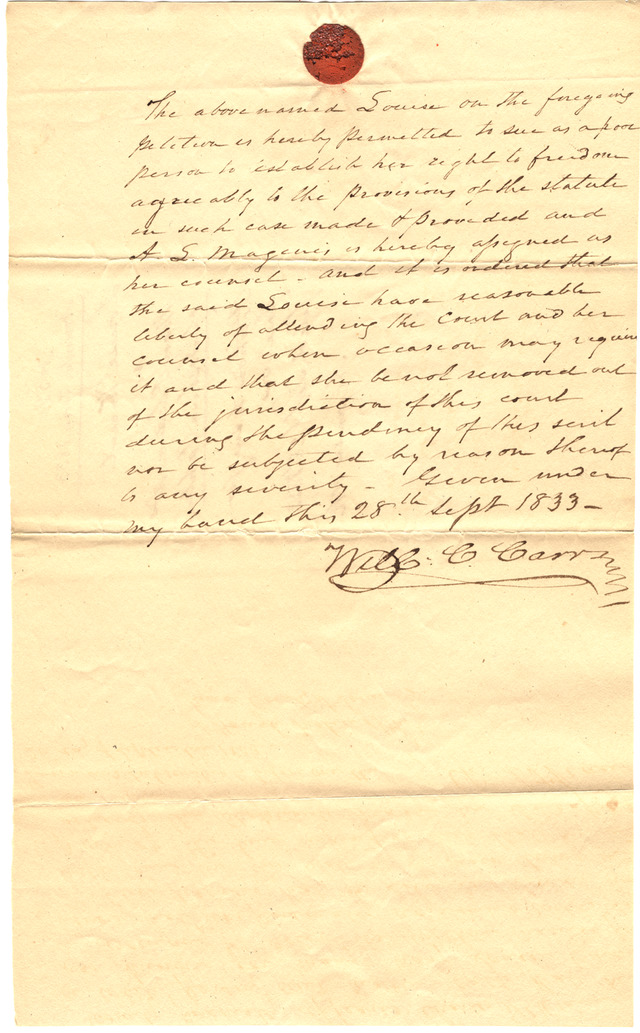 The above named Louise on the foregoing
petition is hereby permitted to sue as a poor
person to establish her right to freedom
agreeably to the provisions of the statute
in such case made & provided and
A. L. Magenis is hereby assigned as
her counsel - and it is ordered that
the said Louise have reasonable
liberty of attending the Court and her
counsel when occasion may require
it and that she be not removed out
of the jurisdiction of this court
during the pendency of this suit
nor be subjected by reason thereof
to any severity - Given under
my hand this 28th Sept 1833 -
Will: C. Carr